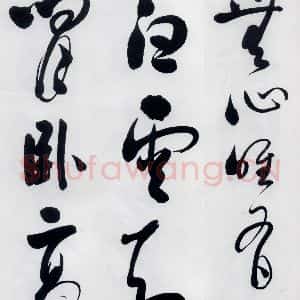 無心唯有
白雲知
閒臥高
Shufawang.CN